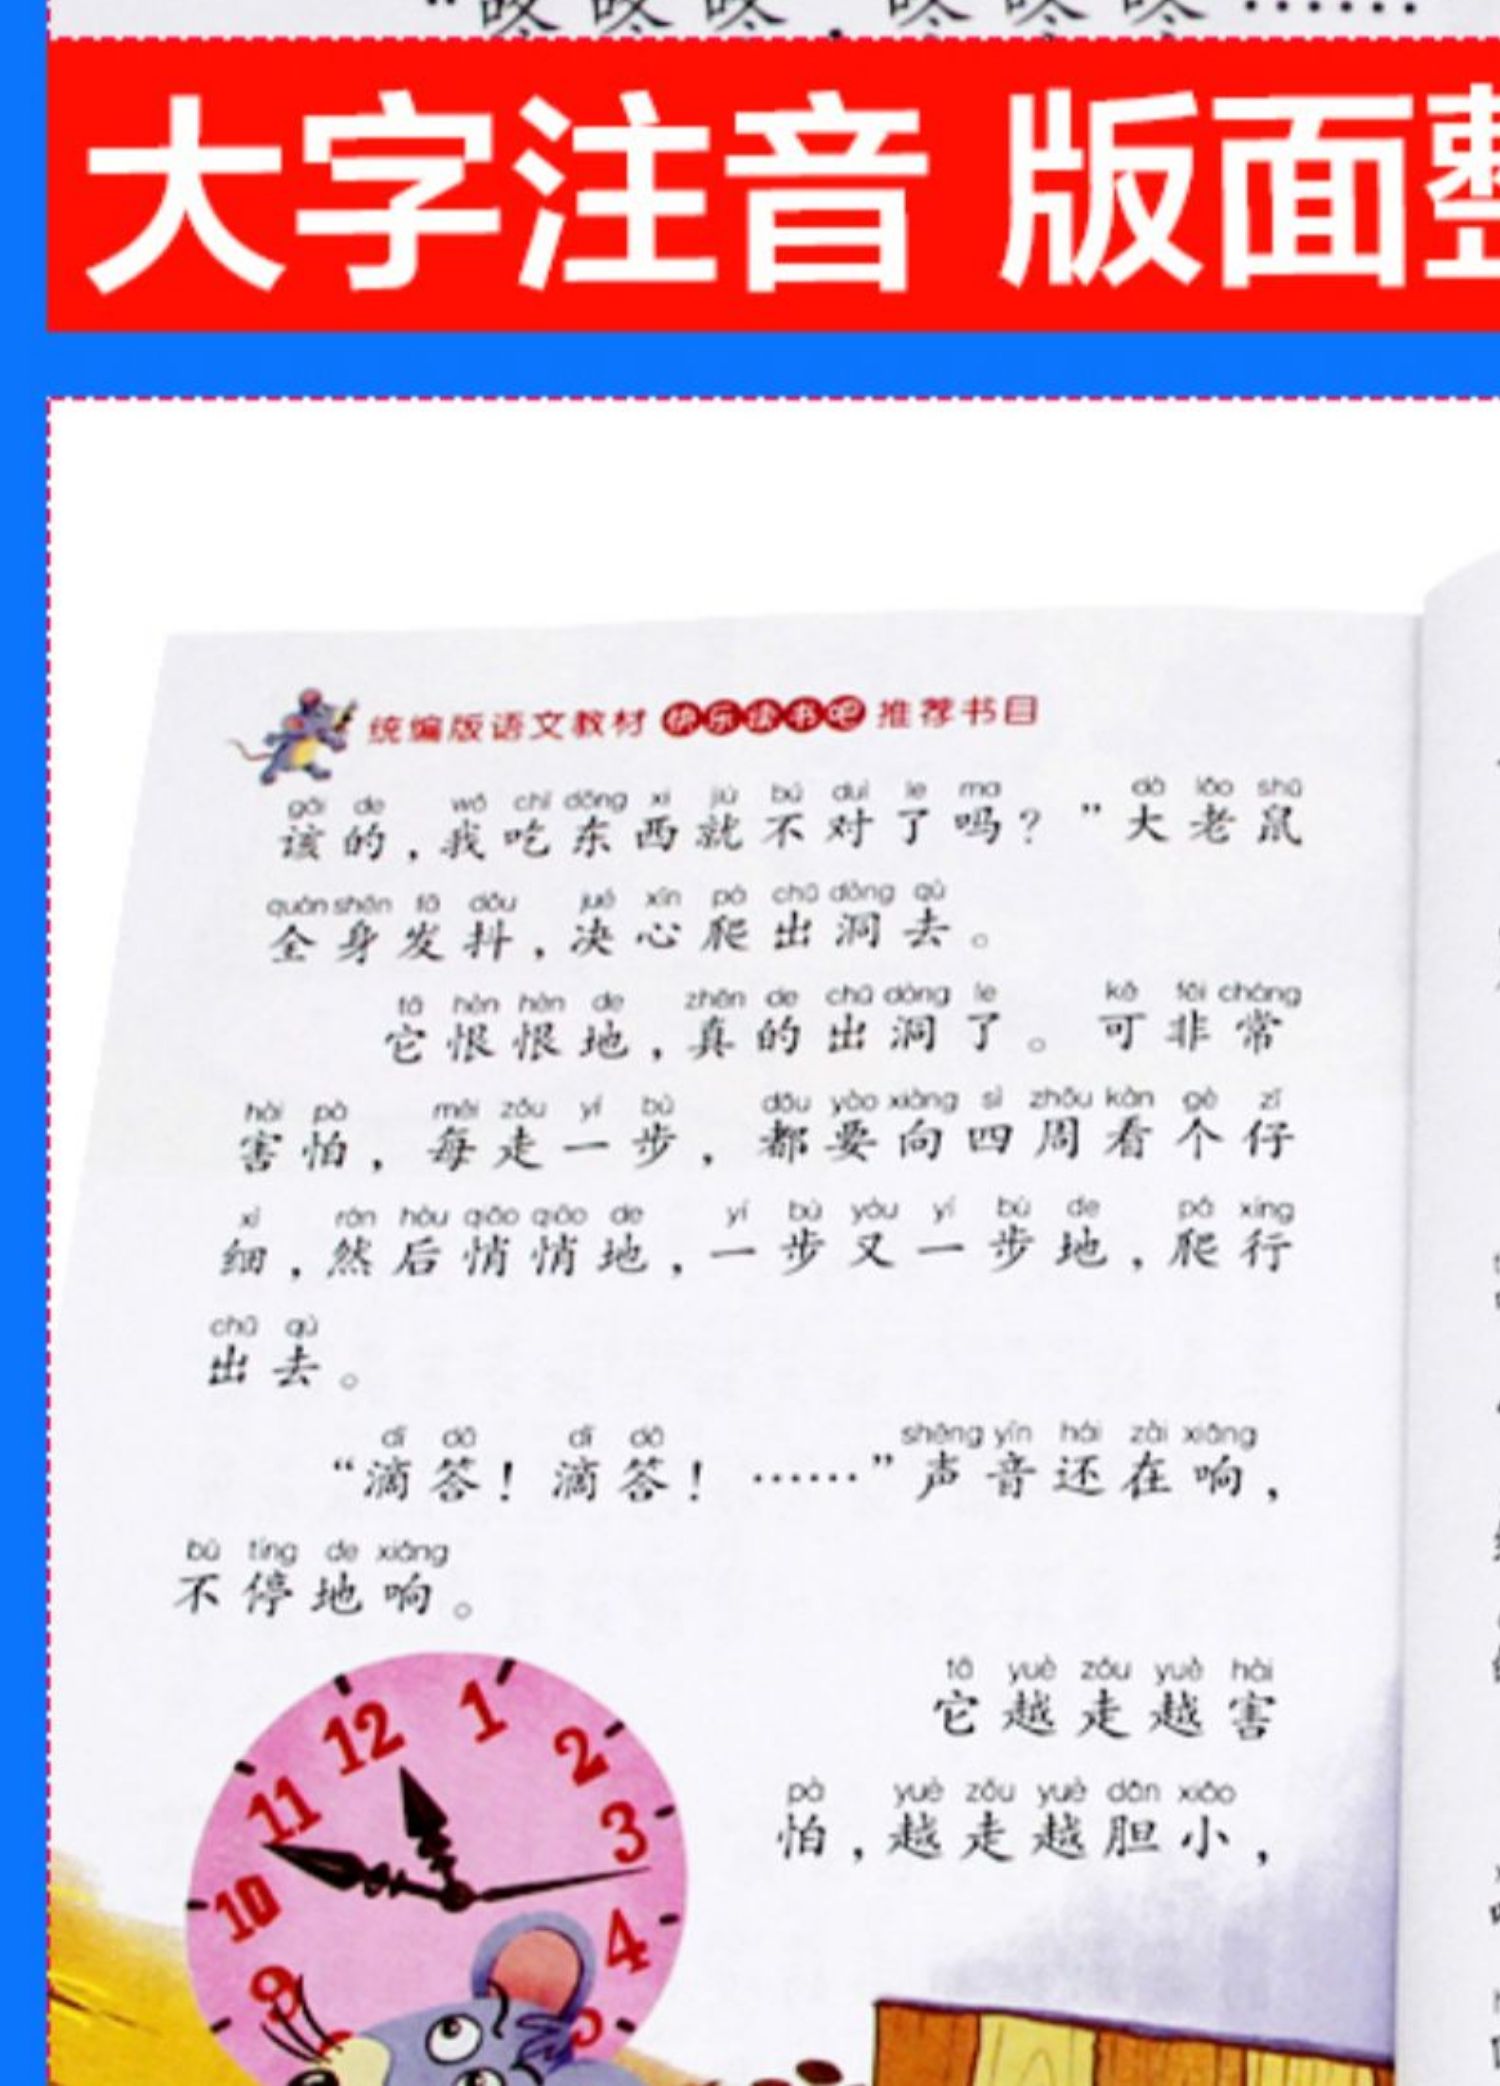 “咚咚咚，咚咚咚……
大字注音 版面整
统编版语文教材 快乐读书吧 推荐书目
gāi de wǒ chī dōng xi jiù bú duì le ma dà lǎo shǔ
该的，我吃东西就不对了吗？”大老鼠
quán shēn fā dǒu jué xīn pá chū dòng qù
全身发抖，决心爬出洞去。
tā hèn hèn de zhēn de chū dòng le kě fēi cháng
它恨恨地，真的出洞了。可非常
hài pà měi zǒu yí bù dōu yào xiàng sì zhōu kàn gè zǐ
害怕，每走一步，都要向四周看个仔
xì rán hòu qiāo qiāo de yí bù yòu yí bù de pá xíng
细，然后悄悄地，一步又一步地，爬行
chū qù
出去。
dī dā dī dā shēng yīn hái zài xiǎng
“滴答！滴答！……”声音还在响，
bù tíng de xiǎng
不停地响。
tā yuè zǒu yuè hài
它越走越害
pà yuè zǒu yuè dǎn xiǎo
怕，越走越胆小，
12
1
2
3
4
5
9
10
11